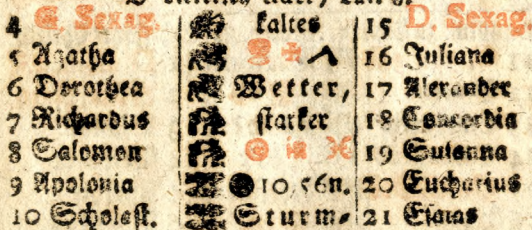 4 G. Sexag. kaltes 15 D. Sexag.
5 Agatha 16 Juliana
6 Dorothea Wetter, 17 Alexander
7 Richardus starker 18 Concordia
8 Salomon ☉ in ♓ 19 Susanna
9 Apolonia ● 10, 56n. 20 Eucharius
10 Scholast. Sturm⸗ 21 Esaias